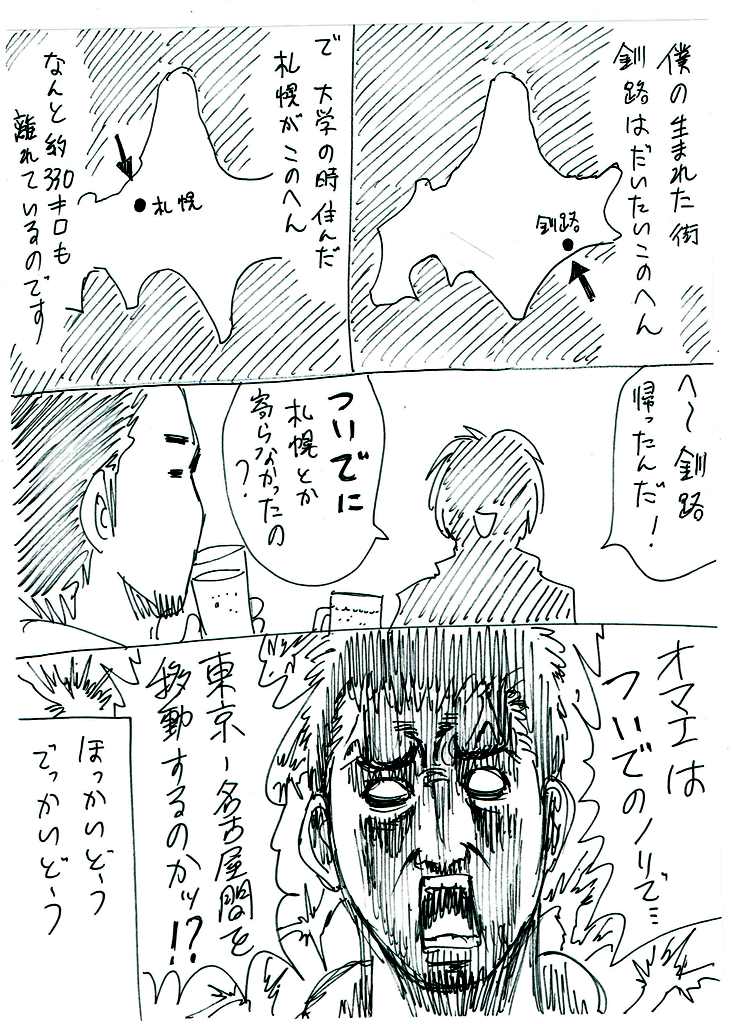 僕の生まれた街
釧路はだいたいこのへん
釧路
で 大学の時住んだ
札幌がこのへん
札幌
なんと約
330キロも
離れているのです
へ～釧路
帰ったんだ！
ついでに
札幌とか
寄らなかったの
？
オマエは
ついでのノリで…
東京ー名古屋間を
移動するのかッ!?
ほっかいどーう
でっかいどーう